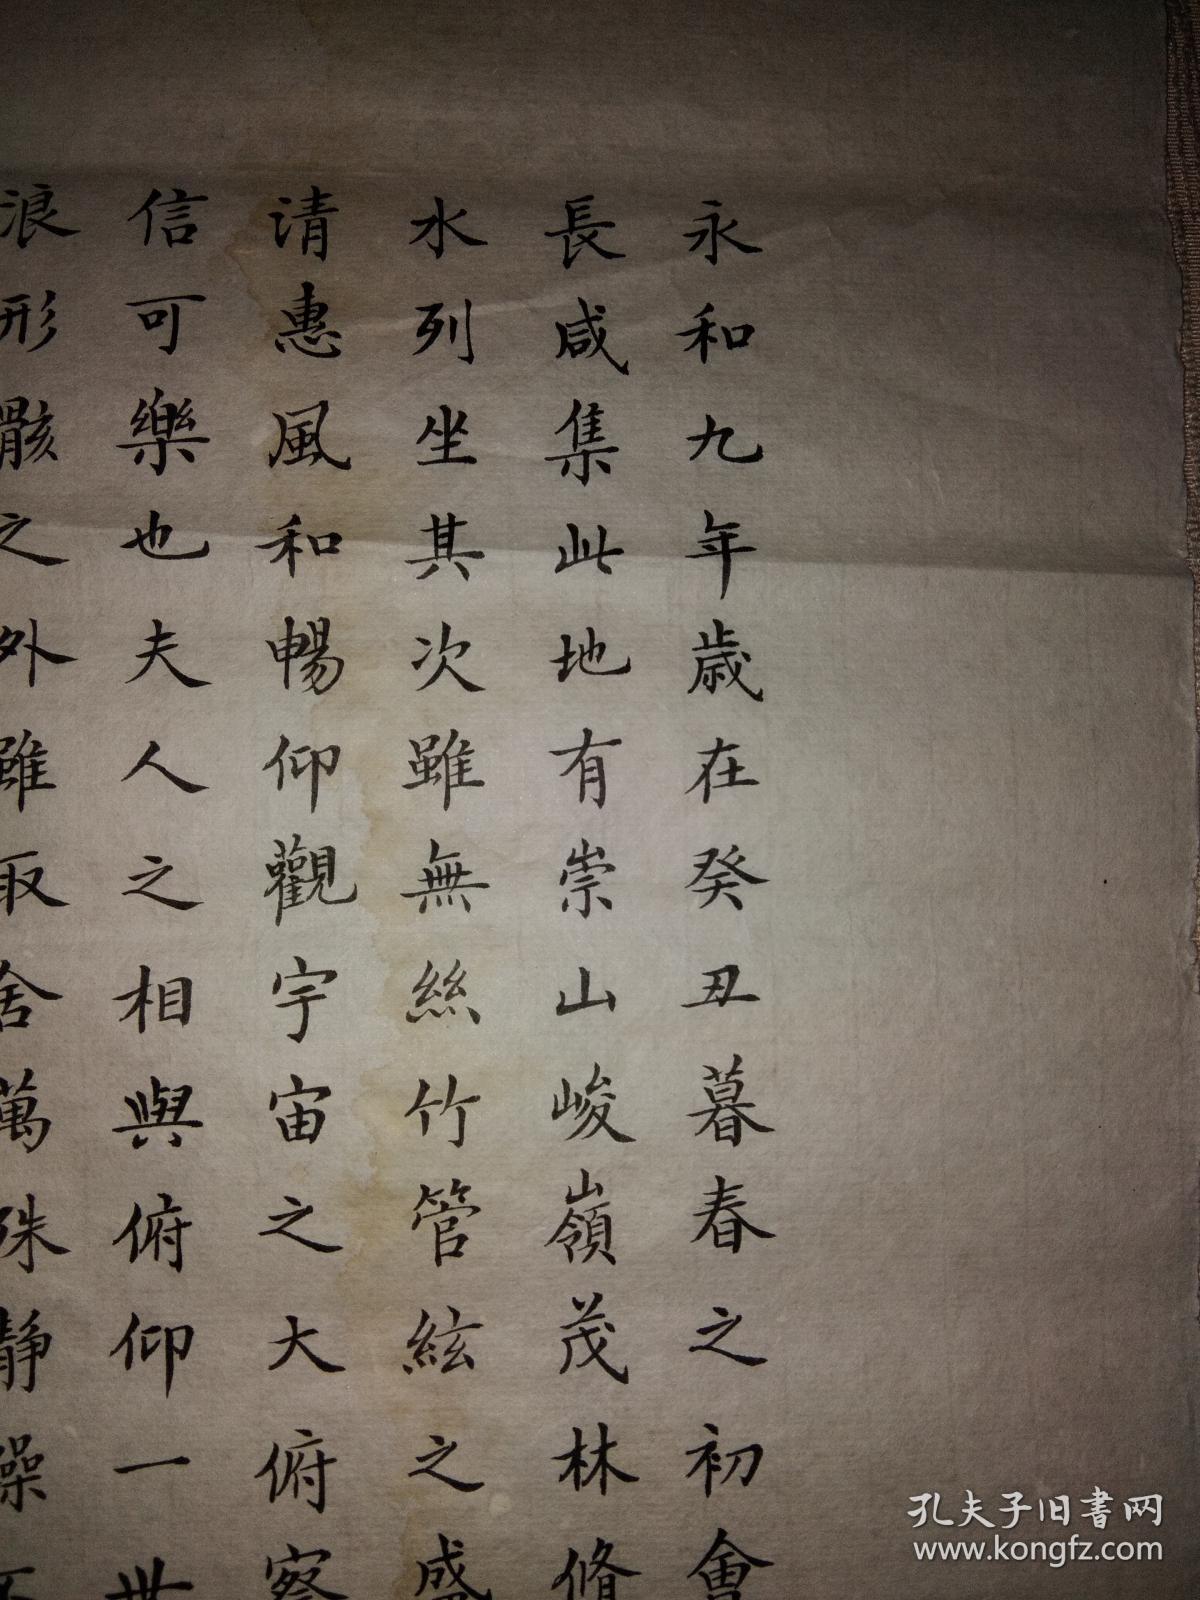 永和九年歳在癸丑暮春之初會
長咸集此地有崇山峻嶺茂林脩
水列坐其次雖無絲竹管絃之盛
请惠風和暢仰觀宇宙之大俯察
信可樂也夫人之相與俯仰一世
浪形骸之外雖取舍萬殊静躁不
孔夫子旧書网
www.kongfz.com